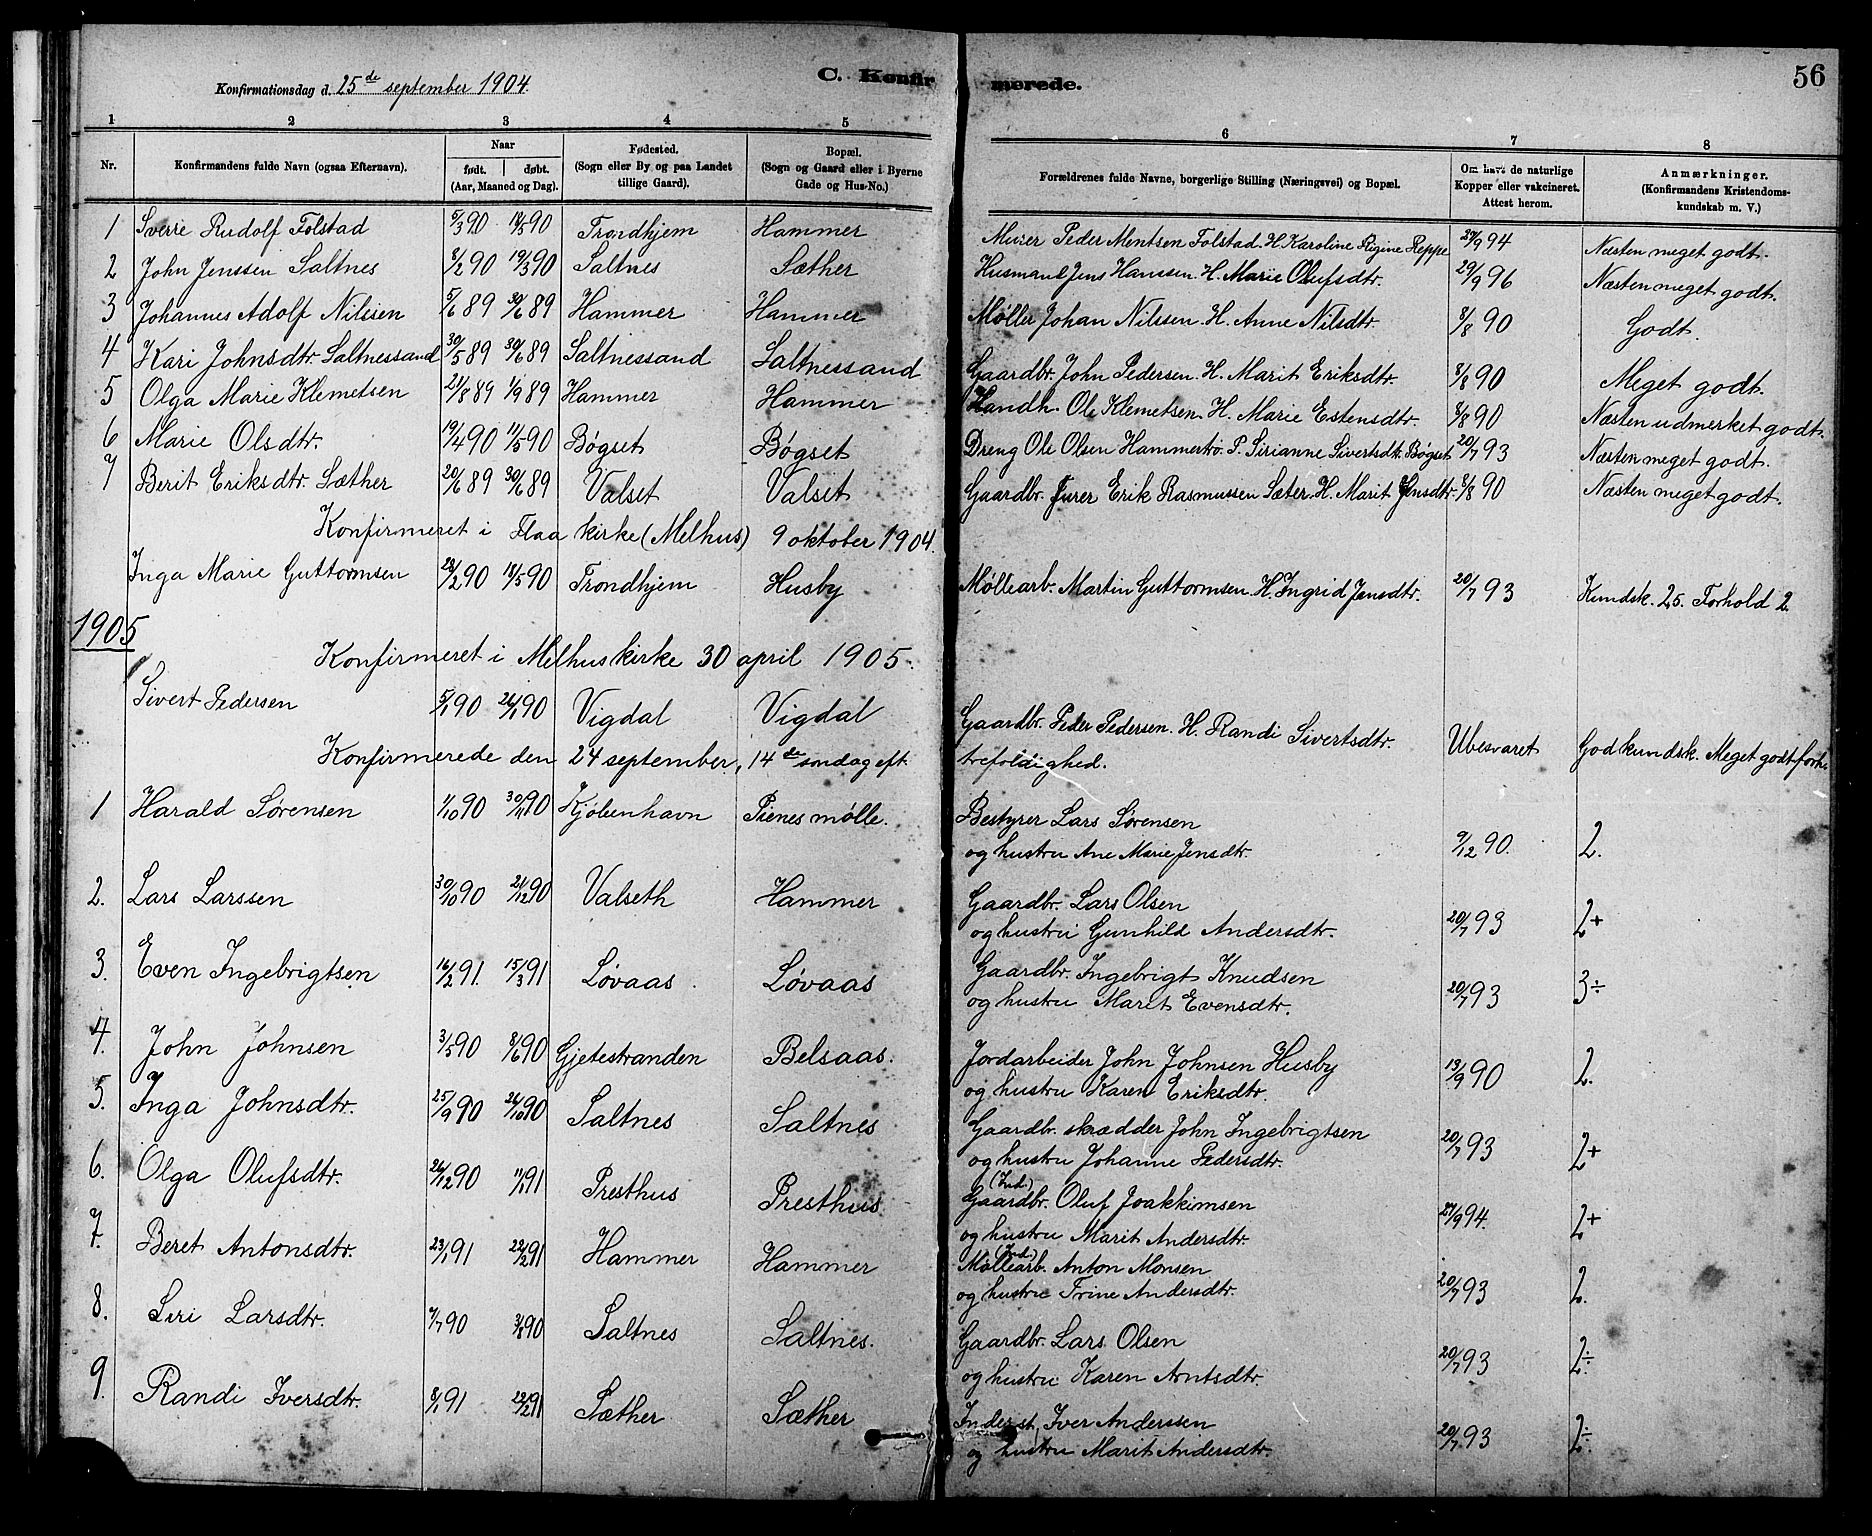 56
C. Konfirmerede.
Konfirmationsdag d. 25de september 1904.
1 2 3 4 5 6 7 8
Nr. Konfirmandens fulde Navn (ogsaa Efternavn). Naar født. døbt. (Aar, Maaned og Dag). Fødested. (Sogn eller By og paa Landet tillige Gaard). Bopæl. (Sogn og Gaard eller i Byerne Gade og Hus-No.) Forældrenes fulde Navne, borgerlige Stilling (Næringsvei) og Bopæl. Om havt de naturlige Kopper eller vakcineret. Attest herom. Anmærkninger. (Konfirmandens Kristendomskundskab m. V.)
1 Sverre Rudolf Folstad 5/3 90 18/5 90 Trondhjem Hammer Murer Peder Mentsen Folstad. H. Karoline Regine Reppe 27/9 94 Næsten meget godt.
2 John Jenssen Saltnes 8/2 90 19/3 90 Saltnes Sæther Husmand Jens Hanssen. H. Marie Olufsdtr. 29/9 96 Næsten meget godt.
3 Johannes Adolf Nilssen 5/6 89 30/6 89 Hammer Hammer Møller Johan Nilssen. H. Anne Nilsdtr. 8/8 90 Godt.
4 Kari Johnsdtr. Saltnessand 30/5 89 30/6 89 Saltnessand Saltnessand Gaardbr. John Pedersen. H. Marit Eriksdtr. 8/8 90 Meget godt.
5 Olga Marie Klemetsen 21/8 89 1/9 89 Hammer Hammer Handh. Ole Klemetsen. H. Marie Estensdtr. 8/8 90 Næsten udmerket godt.
6 Marie Olsdtr. 19/4 90 11/5 90 Bøgset Bøgset Dreng Ole Olsen Hammermo. P. Sirianne Sivertsdtr. Bøgset 20/7 93 Næsten meget godt.
7 Berit Eriksdtr. Sæther 20/6 89 30/6 89 Valset Valset Gaardbr. Furer Erik Rasmussen Sæter. H. Marit Jensdtr. 8/8 90 Næsten meget godt.
Konfirmeret i Flaa kirke (Melhus) 9 oktober 1904.
Inga Marie Guttormsen 28/2 90 18/5 90 Trondhjem Husby Møllearb. Martin Guttormsen. H. Ingrid Jensdtr. 20/7 93 Kundsk. 2,5. Forhold 2
1905
Konfirmeret i Melhus kirke 30 april 1905.
1 Sivert Pedersen 5/1 90 26/1 90 Vigdal Vigdal Gaardbr. Peder Pedersen. H. Randi Sivertsdtr. Ubesvaret God kundsk. Meget godt forh.
Konfirmerede den 24 september, 14de søndag eft. trefoldighed.
1 Harald Sørensen 1/10 90 30/11 90 Kjøbenhavn Pienes mølle. Bestyrer Lars Sørensen
og hustru Ane Marie Jensdtr. 9/12 90. 2.
2. Lars Larssen 30/10 90 21/12 90 Valseth Hammer Gaardbr. Lars Olsen
og hustru Gunhild Andersdtr. 20/7 93 2+
3. Even Ingebrigtsen 16/2 91. 15/3 91 Løvaas Løvaas Gaardbr. Ingebrigt Knudsen
og hustru Marit Evensdtr. 20/7 93 3÷
4. John Johnsen 3/5 90 8/6 90 Gjetestranden Belsaas. Jordarbeider John Johnsen Husby
og hustru Karen Eriksdtr. 13/9 90 2.
5. Inga Johnsdtr. 25/9 90 26/10 90 Saltnes Saltnes Gaardbr. skrædder John Ingebrigtsen
og hustru Johanne Pedersdtr. 20/7 93 2+
6. Olga Olufsdtr. 26/12 90 11/1 91 Presthus Presthus (Ind.)
Gaardbr. Oluf Joakkimsen
og hustru Marit Andersdtr. 27/9 94. 2+
7. Beret Antonsdtr. 23/1 91 22/2 91 Hammer Hammer (Ind.)
Møllearb. Anton Monsen
og hustru Trine Andersdtr. 20/7 93 2.
8. Siri Larsdtr. 7/7 90 3/8 90 Saltnes Saltnes. Gaardbr. Lars Olsen
og hustru Karen Arntsdtr. 20/7 93 2÷
9. Randi Iversdtr. 8/1 91 22/2 91 Sæther Sæther Inderst. Iver Anderssen
og hustru Marit Andersdtr. 20/7 93 2÷